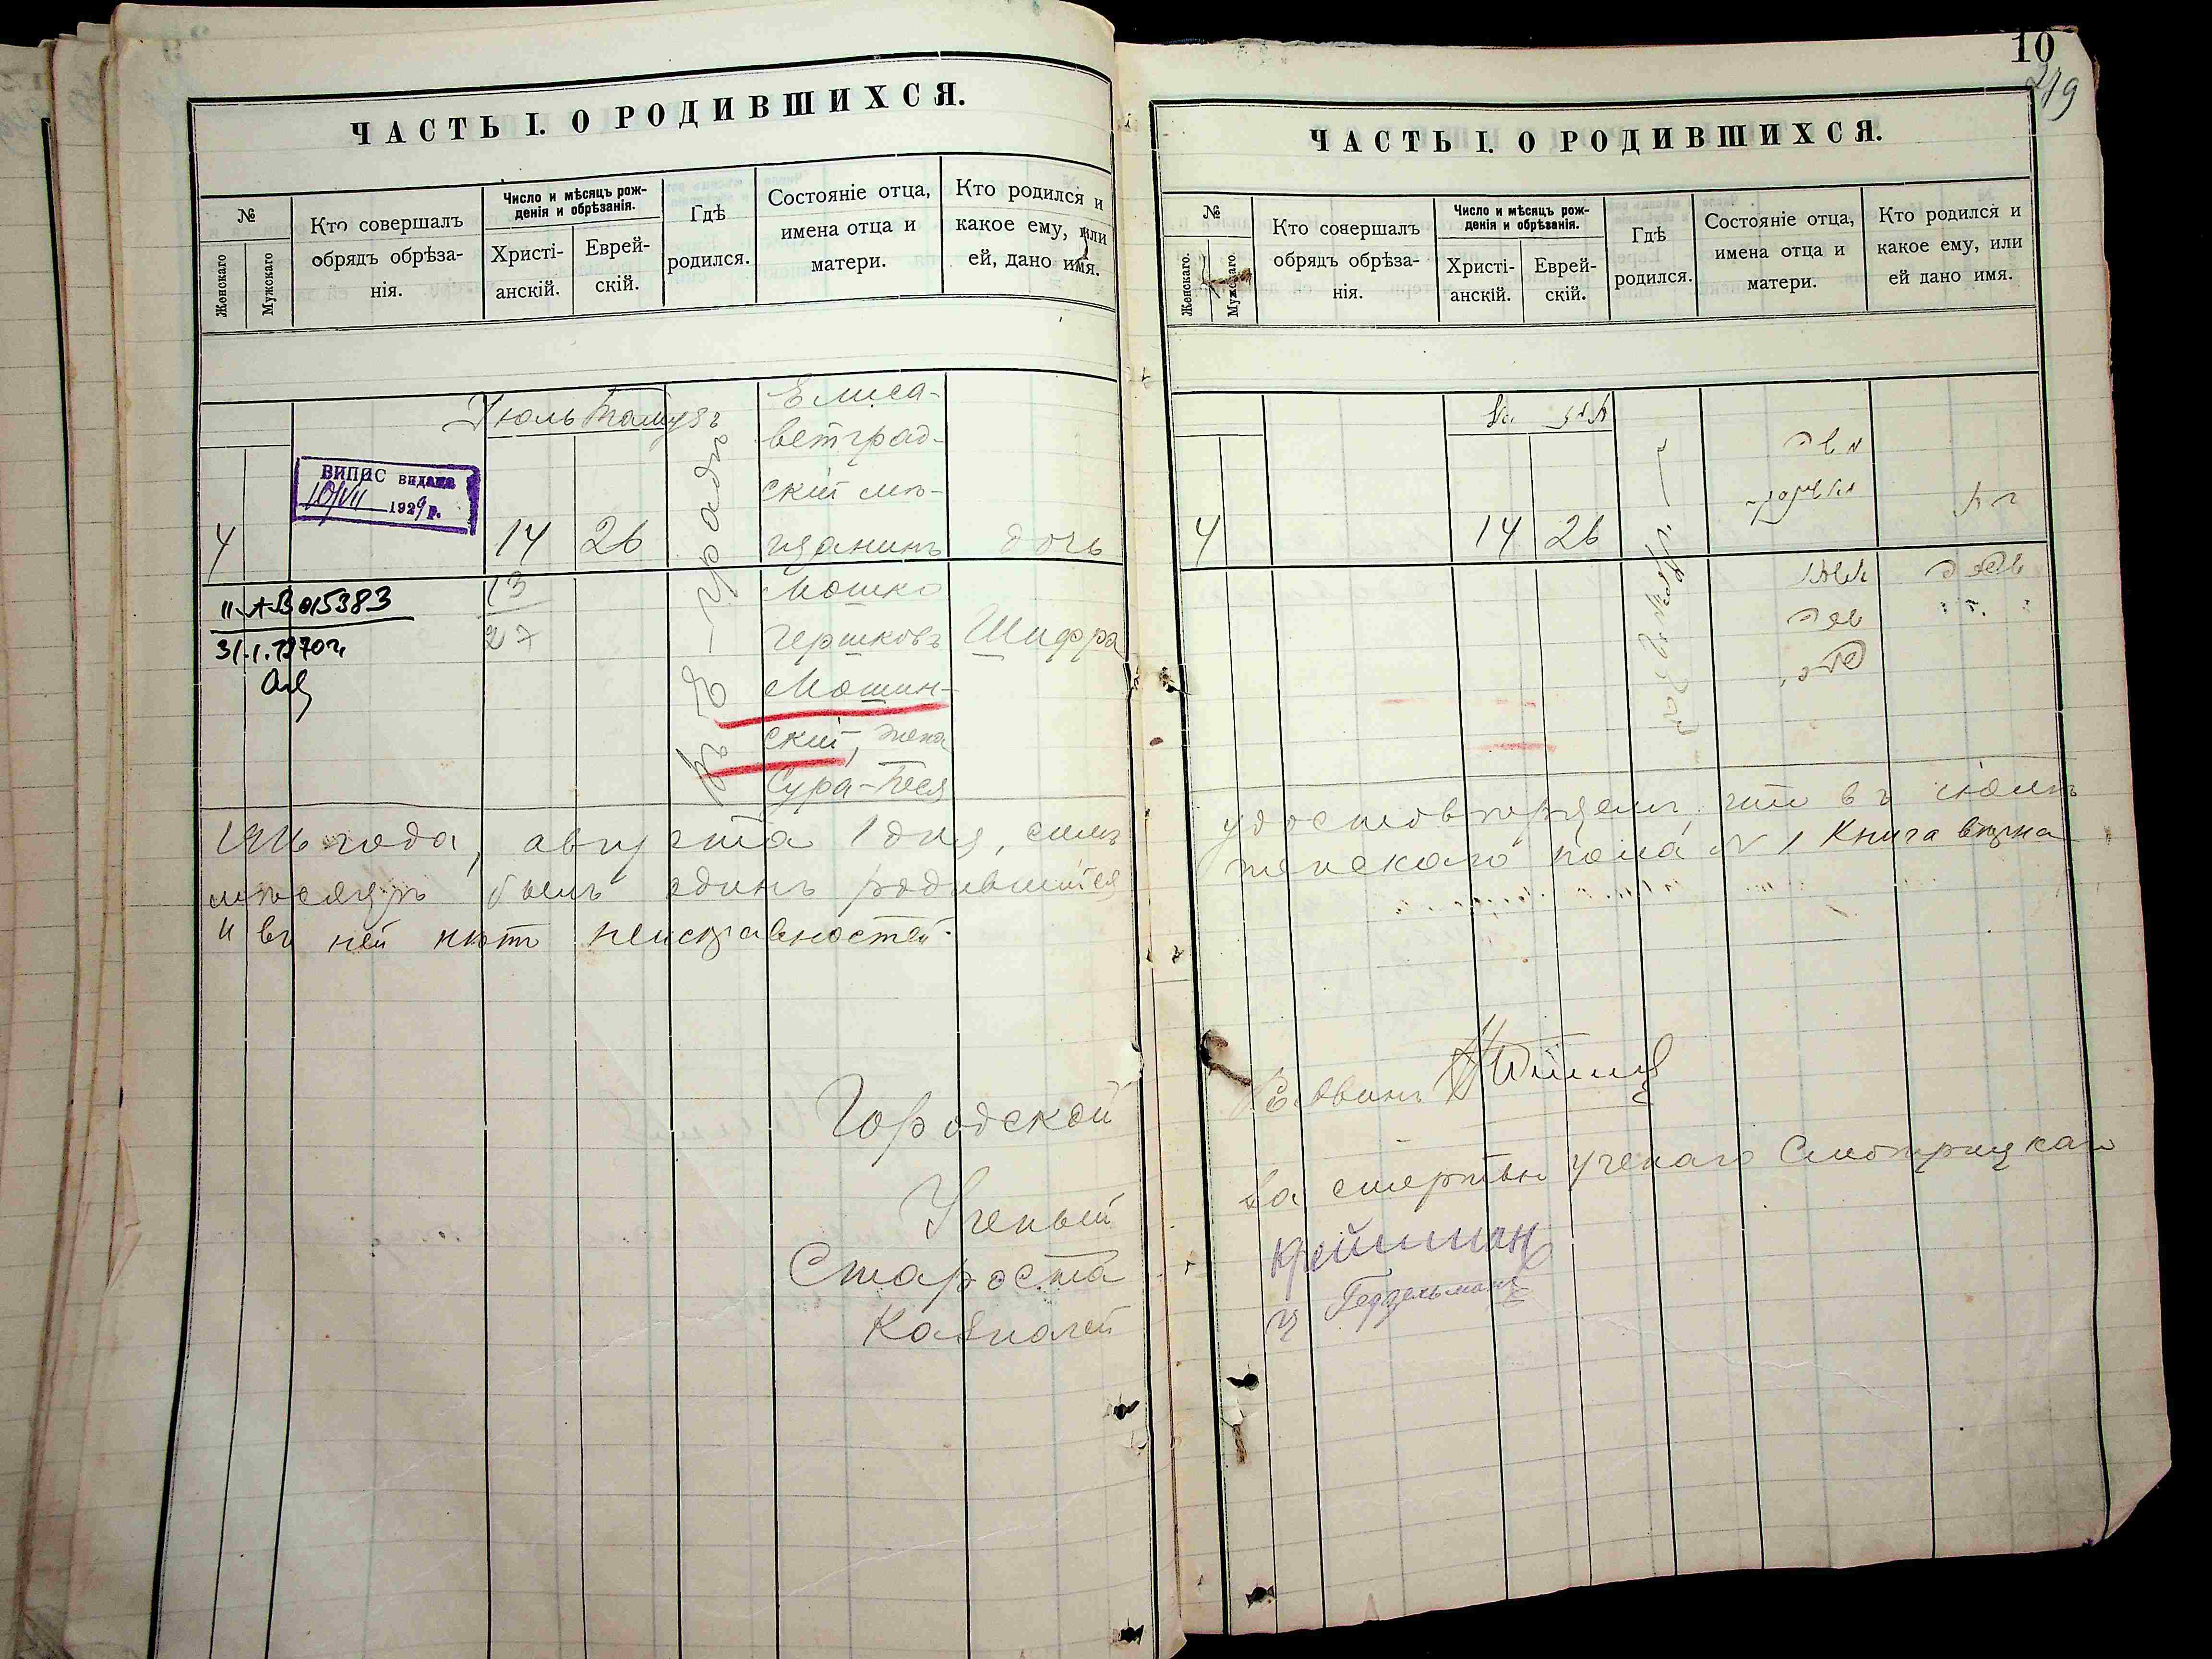 ЧАСТЬ I. О РОДИВШИХСЯ.
№
Женскаго
Мужскаго
Кто совершалъ
обрядъ обрѣза-
нія.
Число и мѣсяцъ рож-
денія и обрѣзанія.
Христі-
анскій.
Еврей-
скій.
Гдѣ
родился.
Состояніе отца,
имена отца и
матери.
Кто родился и
какое ему, или
ей, дано имя.
Іюль Тамузъ
4
ВИПИС видана
10/VII 1929 р.
14
26
13
27
Елиса-
ветград-
скій мѣ-
щанинъ
Мошко
Гершковъ
Мошин-
скій, жена
Сура-Песя
дочь
Шифра
II-АВ 015383
31.I.1970г.
1916 года, августа 1 дня, симъ
мѣсяцѣ былъ одинъ родившійся
и въ ней нѣтъ неисправностей.
Городской
Ученый
Староста
Казначей
10
219
ЧАСТЬ I. О РОДИВШИХСЯ.
№
Женскаго.
Мужскаго.
Кто совершалъ
обрядъ обрѣза-
нія.
Число и мѣсяцъ рож-
денія и обрѣзанія.
Христі-
анскій.
Еврей-
скій.
Гдѣ
родился.
Состояніе отца,
имена отца и
матери.
Кто родился и
какое ему, или
ей дано имя.
4
14
26
удостовѣряемъ, что въ іюлѣ
женскаго пола № 1 Книга вѣрна
Раввинъ
За смертью ученаго Смотрицкаго
Крейшман